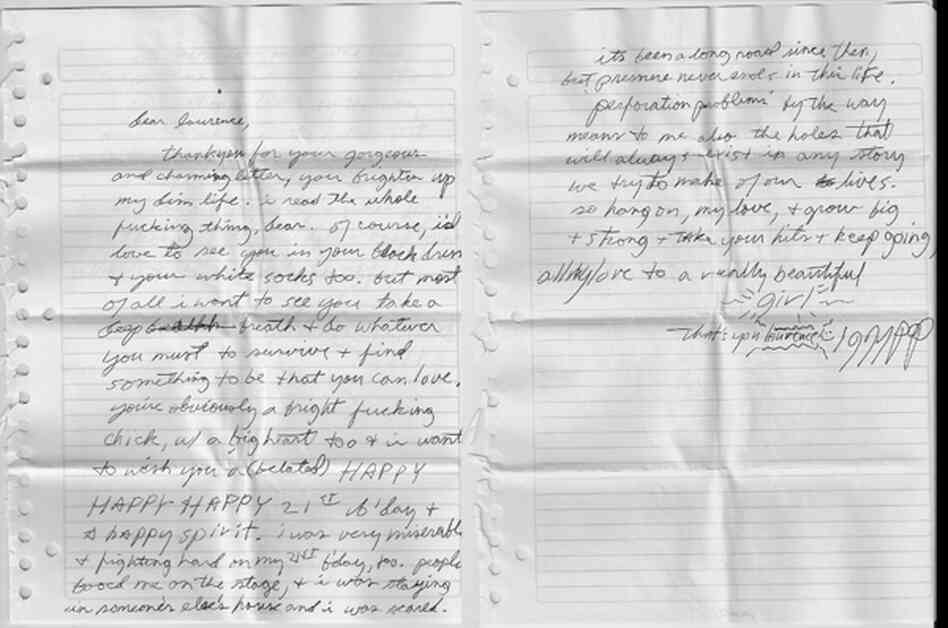 dear laurence,
thankyou for your gorgeous
and charming letter, you brighten up
my dim life. i read the whole
fucking thing, dear. of course, i'd
love to see you in your black dress
+ your white socks too. but most
of all i want to see you take a
deep breath + do whatever
you must to survive + find
something to be that you can love.
you're obviously a bright fucking
chick, w/ a big heart too + i want
to wish you a (belated) HAPPY
HAPPY HAPPY 21ST b'day +
a happy spirit. i was very miserable
+ fighting hard on my 21ST b'day, too. people
booed me on the stage, + i was staying
in someone else's house and i was scared.
its been a long road since then,
but pressure never ends in this life.
'perforation problems' by the way
means to me also the holes that
will always exist in any story
we try to make of our lives.
so hang on, my love, + grow big
+ strong + take your hits + keep going
all my love to a really beautiful
girl
That's you laurence